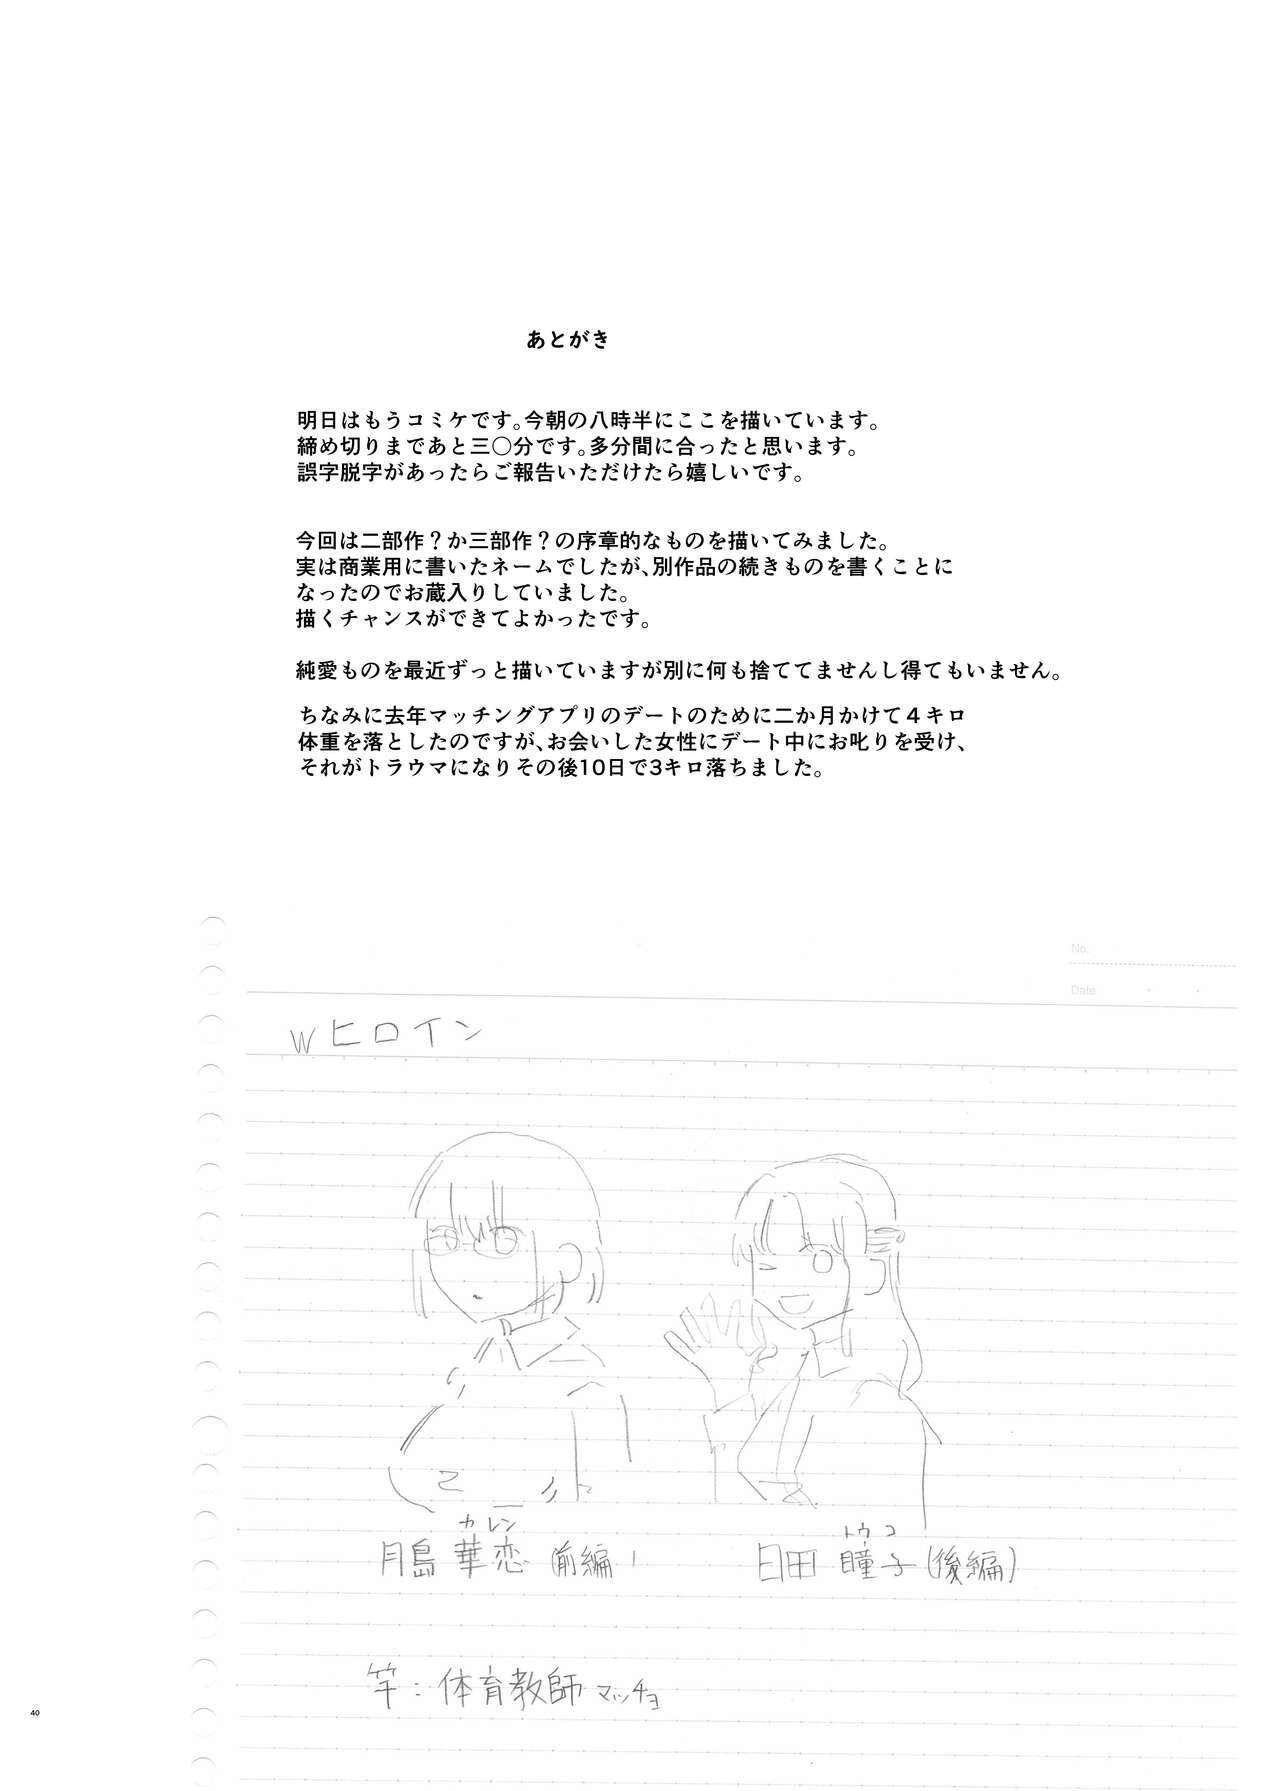 あとがき
明日はもうコミケです。今朝の八時半にここを描いています。
締め切りまであと三〇分です。多分間に合ったと思います。
誤字脱字があったらご報告いただけたら嬉しいです。
今回は二部作？か三部作？の序章的なものを描いてみました。
実は商業用に書いたネームでしたが、別作品の続きものを書くことに
なったのでお蔵入りしていました。
描くチャンスができてよかったです。
純愛ものを最近ずっと描いていますが別に何も捨ててませんし得てもいません。
ちなみに去年マッチングアプリのデートのために二か月かけて４キロ
体重を落としたのですが、お会いした女性にデート中にお叱りを受け、
それがトラウマになりその後10日で3キロ落ちました。
No.
Date
Wヒロイン
カレン
月島 華恋 (前編)
トウコ
日田 瞳子 (後編)
竿：体育教師 マッチョ
40